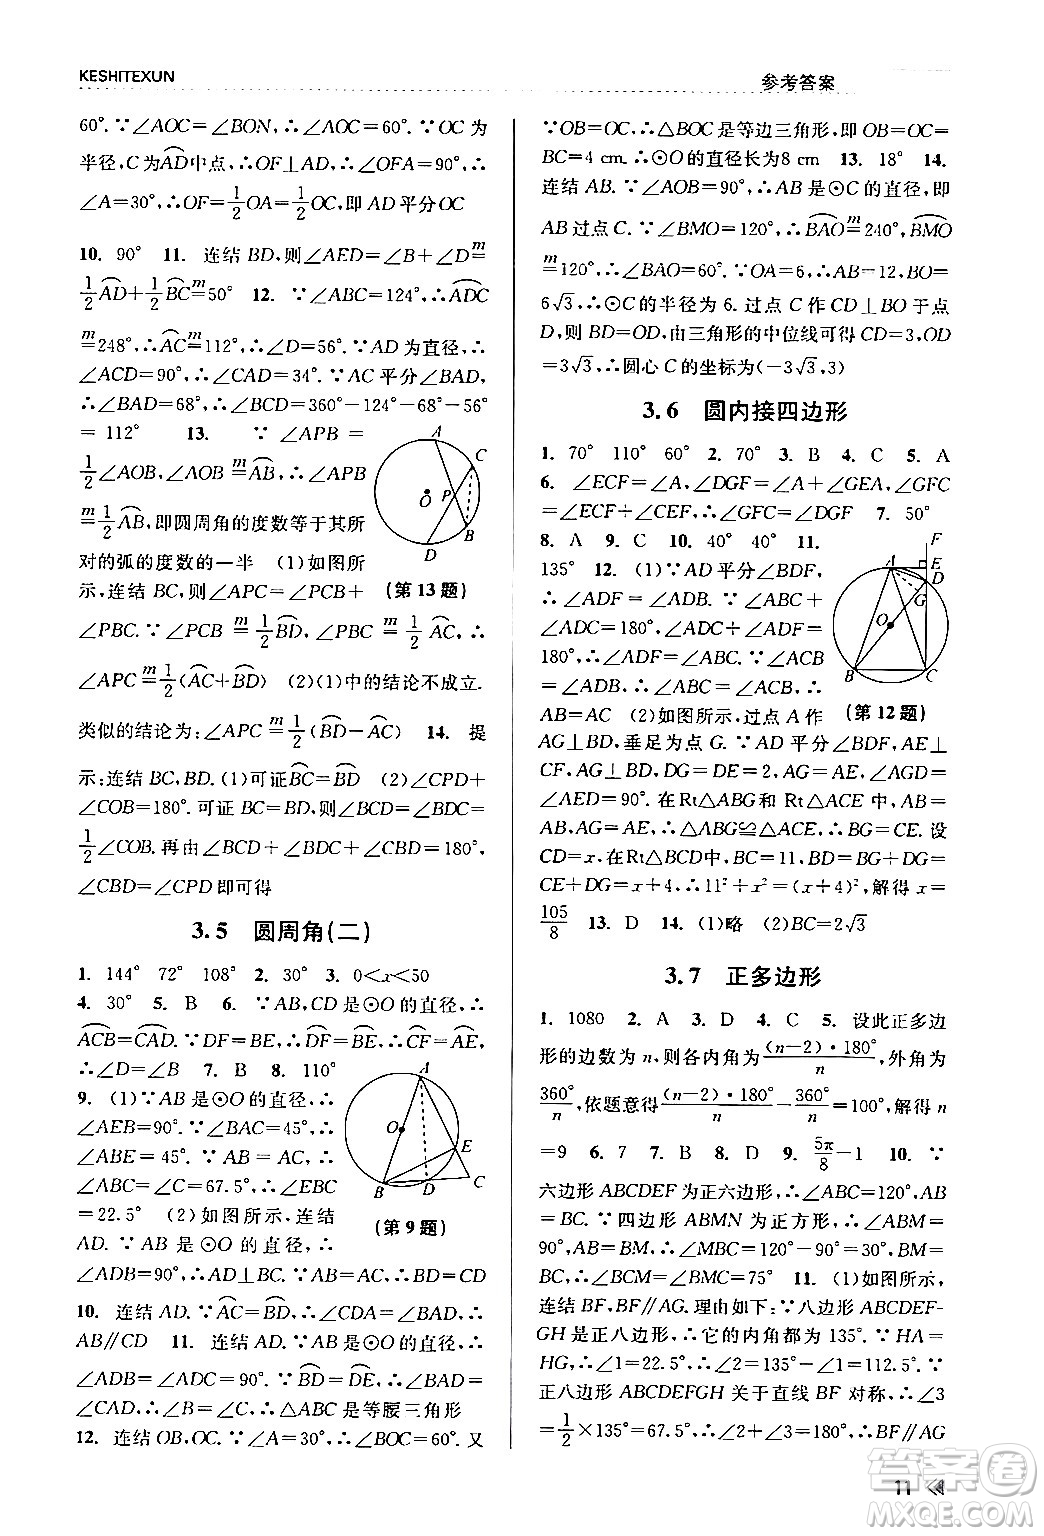 KESHITEXUN
参考答案
60°.∵∠AOC=∠BON,∴∠AOC=60°.∵OC为
半径,C为⌒AD中点,∴OF⊥AD,∴∠OFA=90°,∵
∠A=30°,∴OF=1/2OA=1/2OC,即AD平分OC
10. 90° 11. 连结BD,则∠AED=∠B+∠D m=
1/2⌒AD+1/2⌒BC m= 50° 12. ∵∠ABC=124°,∴⌒ADC
m= 248°,∴⌒AC m= 112°,∴∠D=56°.∵AD为直径,∴
∠ACD=90°,∴∠CAD=34°.∵AC平分∠BAD,
∴∠BAD=68°,∴∠BCD=360°-124°-68°-56°
=112° 13. ∵∠APB=
1/2∠AOB,∠AOB m= ⌒AB,∴∠APB
m= 1/2⌒AB,即圆周角的度数等于其所
对的弧的度数的一半 (1)如图所
示,连结BC,则∠APC=∠PCB+
∠PBC.∵∠PCB m= 1/2⌒BD,∠PBC m= 1/2⌒AC,∴
∠APC m= 1/2(⌒AC+⌒BD) (2)(1)中的结论不成立.
类似的结论为:∠APC m= 1/2(⌒BD-⌒AC) 14. 提
示:连结BC,BD.(1)可证⌒BC=⌒BD (2)∠CPD+
∠COB=180°.可证BC=BD,则∠BCD=∠BDC=
1/2∠COB.再由∠BCD+∠BDC+∠CBD=180°,
∠CBD=∠CPD即可得
A
C
P
O
B
D
(第13题)
3.5 圆周角(二)
1. 144° 72° 108° 2. 30° 3. 0<x<50
4. 30° 5. B 6. ∵AB,CD是⊙O的直径,∴
⌒ACB=⌒CAD.∵DF=BE,∴⌒DF=⌒BE,∴⌒CF=⌒AE,
∴∠D=∠B 7. B 8. 110°
9. (1)∵AB是⊙O的直径,∴
∠AEB=90°.∵∠BAC=45°,∴
∠ABE=45°.∵AB=AC,∴
∠ABC=∠C=67.5°,∴∠EBC
=22.5° (2)如图所示,连结
AD.∵AB是⊙O的直径,∴
∠ADB=90°,∴AD⊥BC.∵AB=AC,∴BD=CD
10. 连结AD.∵⌒AC=⌒BD,∴∠CDA=∠BAD,∴
AB∥CD 11. 连结AD.∵AB是⊙O的直径,∴
∠ADB=∠ADC=90°.∵⌒BD=⌒DE,∴∠BAD=
∠CAD,∴∠B=∠C,∴△ABC是等腰三角形
12. 连结OB,OC.∵∠A=30°,∴∠BOC=60°.又
A
O
E
B
D
C
(第9题)
∵OB=OC,∴△BOC是等边三角形,即OB=OC=
BC=4 cm.∴⊙O的直径长为8 cm 13. 18° 14.
连结AB.∵∠AOB=90°,∴AB是⊙C的直径,即
AB过点C.∵∠BMO=120°,∴⌒BAO m= 240°,⌒BMO
m= 120°,∴∠BAO=60°.∵OA=6,∴AB=12,BO=
6√3,∴⊙C的半径为6.过点C作CD⊥BO于点
D,则BD=OD,由三角形的中位线可得CD=3,OD
=3√3,∴圆心C的坐标为(-3√3,3)
3.6 圆内接四边形
1. 70° 110° 60° 2. 70° 3. B 4. C 5. A
6. ∠ECF=∠A,∠DGF=∠A+∠GEA,∠GFC
=∠ECF+∠CEF,∴∠GFC=∠DGF 7. 50°
8. A 9. C 10. 40° 40° 11.
135° 12. (1)∵AD平分∠BDF,
∴∠ADF=∠ADB.∵∠ABC+
∠ADC=180°,∠ADC+∠ADF=
180°,∴∠ADF=∠ABC.∵∠ACB
=∠ADB,∴∠ABC=∠ACB,∴
AB=AC (2)如图所示,过点A作
AG⊥BD,垂足为点G.∵AD平分∠BDF,AE⊥
CF,AG⊥BD,∴AG=AE,∠AGD=
∠AED=90°.在Rt△ABG和Rt△ACE中,AC=
AB,AG=AE,∴△ABG≌△ACE,∴BG=CE.设
CD=x.在Rt△BCD中,∵BC=11,BD=BG+DG=
CE+DG=x+4,∴11²+x²=(x+4)²,解得x=
105/8 13. D 14. (1)略 (2)BC=2√3
F
A
E
D
G
O
B
C
(第12题)
3.7 正多边形
1. 1080 2. A 3. D 4. C 5. 设此正多边
形的边数为n,则各内角为(n-2)·180°/n,外角为
360°/n,依题意得(n-2)·180°/n-360°/n=100°,解得n
=9 6. 7 7. B 8. D 9. 5π/8-1 10. ∵
六边形ABCDEF为正六边形,∴∠ABC=120°,AB
=BC.∵四边形ABMN为正方形,∴∠ABM=
90°,AB=BM,∴∠MBC=120°-90°=30°,BM=
BC,∴∠BCM=∠BMC=75° 11. (1)如图所示,
连结BF,BF∥AG.理由如下:∵八边形ABCDEF-
GH是正八边形,∴它的内角都为135°.∵HA=
HG,∴∠1=22.5°,∴∠2=135°-∠1=112.5°.∵
正八边形ABCDEFGH关于直线BF对称,∴∠3
=1/2×135°=67.5°,∴∠2+∠3=180°,∴BF∥AG
11
答案圈
MXQE.COM